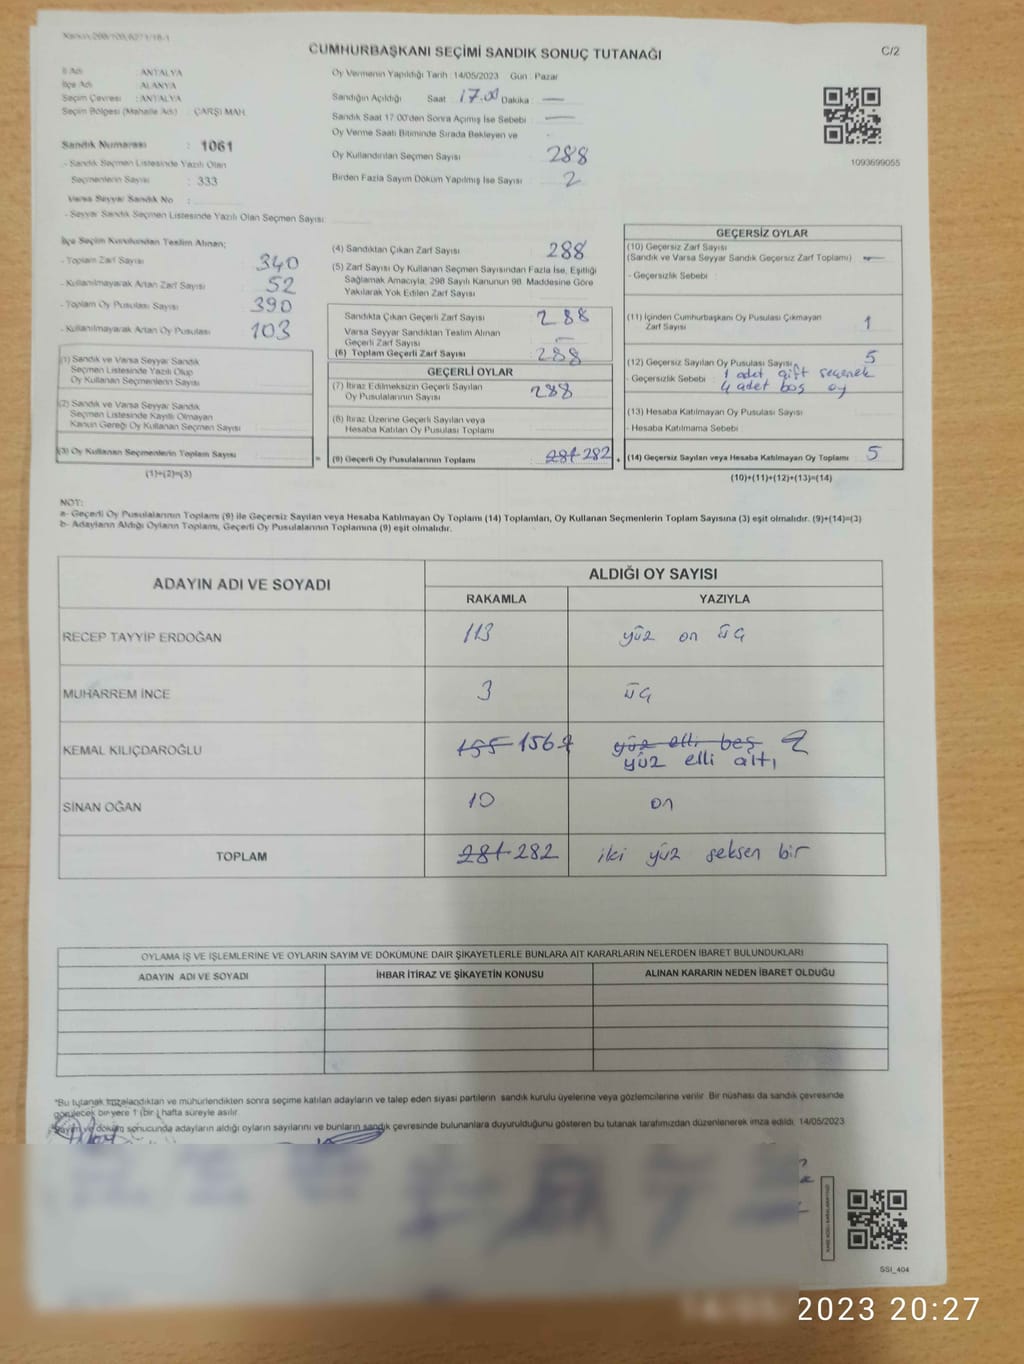 C/2
CUMHURBAŞKANI SEÇİMİ SANDIK SONUÇ TUTANAĞI
İl Adı : ANTALYA
İlçe Adı : ALANYA
Seçim Çevresi : ANTALYA
Seçim Bölgesi (Mahalle Adı) : ÇARŞI MAH.
Sandık Numarası : 1061
- Sandık Seçmen Listesinde Yazılı Olan
Seçmenlerin Sayısı : 333
Varsa Seyyar Sandık No :
- Seyyar Sandık Seçmen Listesinde Yazılı Olan Seçmen Sayısı
Oy Vermenin Yapıldığı Tarih : 14/05/2023 Gün : Pazar
Sandığın Açıldığı Saat : 17.00 Dakika : —
Sandık Saat 17.00'den Sonra Açılmış İse Sebebi : —
Oy Verme Saati Bitiminde Sırada Bekleyen ve
Oy Kullandırılan Seçmen Sayısı 288
Birden Fazla Sayım Döküm Yapılmış İse Sayısı : 2
1093699055
İlçe Seçim Kurulundan Teslim Alınan;
- Toplam Zarf Sayısı 340
- Kullanılmayarak Artan Zarf Sayısı 52
- Toplam Oy Pusulası Sayısı 390
- Kullanılmayarak Artan Oy Pusulası 103
(1) Sandık ve Varsa Seyyar Sandık
Seçmen Listesinde Yazılı Olup
Oy Kullanan Seçmenlerin Sayısı
(2) Sandık ve Varsa Seyyar Sandık
Seçmen Listesinde Kayıtlı Olmayan
Kanun Gereği Oy Kullanan Seçmen Sayısı
(3) Oy Kullanan Seçmenlerin Toplam Sayısı
(1)+(2)=(3)
(4) Sandıktan Çıkan Zarf Sayısı 288
(5) Zarf Sayısı Oy Kullanan Seçmen Sayısından Fazla İse, Eşitliği
Sağlamak Amacıyla, 298 Sayılı Kanunun 98. Maddesine Göre
Yakılarak Yok Edilen Zarf Sayısı
Sandıkta Çıkan Geçerli Zarf Sayısı 288
Varsa Seyyar Sandıktan Teslim Alınan
Geçerli Zarf Sayısı —
(6) Toplam Geçerli Zarf Sayısı 288
GEÇERLİ OYLAR
(7) İtiraz Edilmeksizin Geçerli Sayılan
Oy Pusulalarının Sayısı 288
(8) İtiraz Üzerine Geçerli Sayılan veya
Hesaba Katılan Oy Pusulası Toplamı
(9) Geçerli Oy Pusulalarının Toplamı 281 282
=
+
GEÇERSİZ OYLAR
(10) Geçersiz Zarf Sayısı
(Sandık ve Varsa Seyyar Sandık Geçersiz Zarf Toplamı) —
- Geçersizlik Sebebi :
(11) İçinden Cumhurbaşkanı Oy Pusulası Çıkmayan
Zarf Sayısı 1
(12) Geçersiz Sayılan Oy Pusulası Sayısı 5
- Geçersizlik Sebebi 1 adet çift seçenek
4 adet boş oy
(13) Hesaba Katılmayan Oy Pusulası Sayısı
- Hesaba Katılmama Sebebi
(14) Geçersiz Sayılan veya Hesaba Katılmayan Oy Toplamı 5
(10)+(11)+(12)+(13)=(14)
NOT:
a- Geçerli Oy Pusulalarının Toplamı (9) ile Geçersiz Sayılan veya Hesaba Katılmayan Oy Toplamı (14) Toplamları, Oy Kullanan Seçmenlerin Toplam Sayısına (3) eşit olmalıdır. (9)+(14)=(3)
b- Adayların Aldığı Oyların Toplamı, Geçerli Oy Pusulalarının Toplamına (9) eşit olmalıdır.
ADAYIN ADI VE SOYADI
ALDIĞI OY SAYISI
RAKAMLA YAZIYLA
RECEP TAYYİP ERDOĞAN 113 yüz on üç
MUHARREM İNCE 3 üç
KEMAL KILIÇDAROĞLU 155 156 yüz elli beş
yüz elli altı
SİNAN OĞAN 10 on
TOPLAM 281 282 iki yüz seksen bir
OYLAMA İŞ VE İŞLEMLERİNE VE OYLARIN SAYIM VE DÖKÜMÜNE DAİR ŞİKAYETLERLE BUNLARA AİT KARARLARIN NELERDEN İBARET BULUNDUKLARI
ADAYIN ADI VE SOYADI İHBAR İTİRAZ VE ŞİKAYETİN KONUSU ALINAN KARARIN NEDEN İBARET OLDUĞU
*Bu tutanak imzalandıktan ve mühürlendikten sonra seçime katılan adayların ve talep eden siyasi partilerin sandık kurulu üyelerine veya gözlemcilerine verilir. Bir nüshası da sandık çevresinde
görülecek bir yere 1 (bir) hafta süreyle asılır.
Sayım ve döküm sonucunda adayların aldığı oyların sayılarını ve bunların sandık çevresinde bulunanlara duyurulduğunu gösteren bu tutanak tarafımızdan düzenlenerek imza edildi. 14/05/2023
SSI_404
2023 20:27